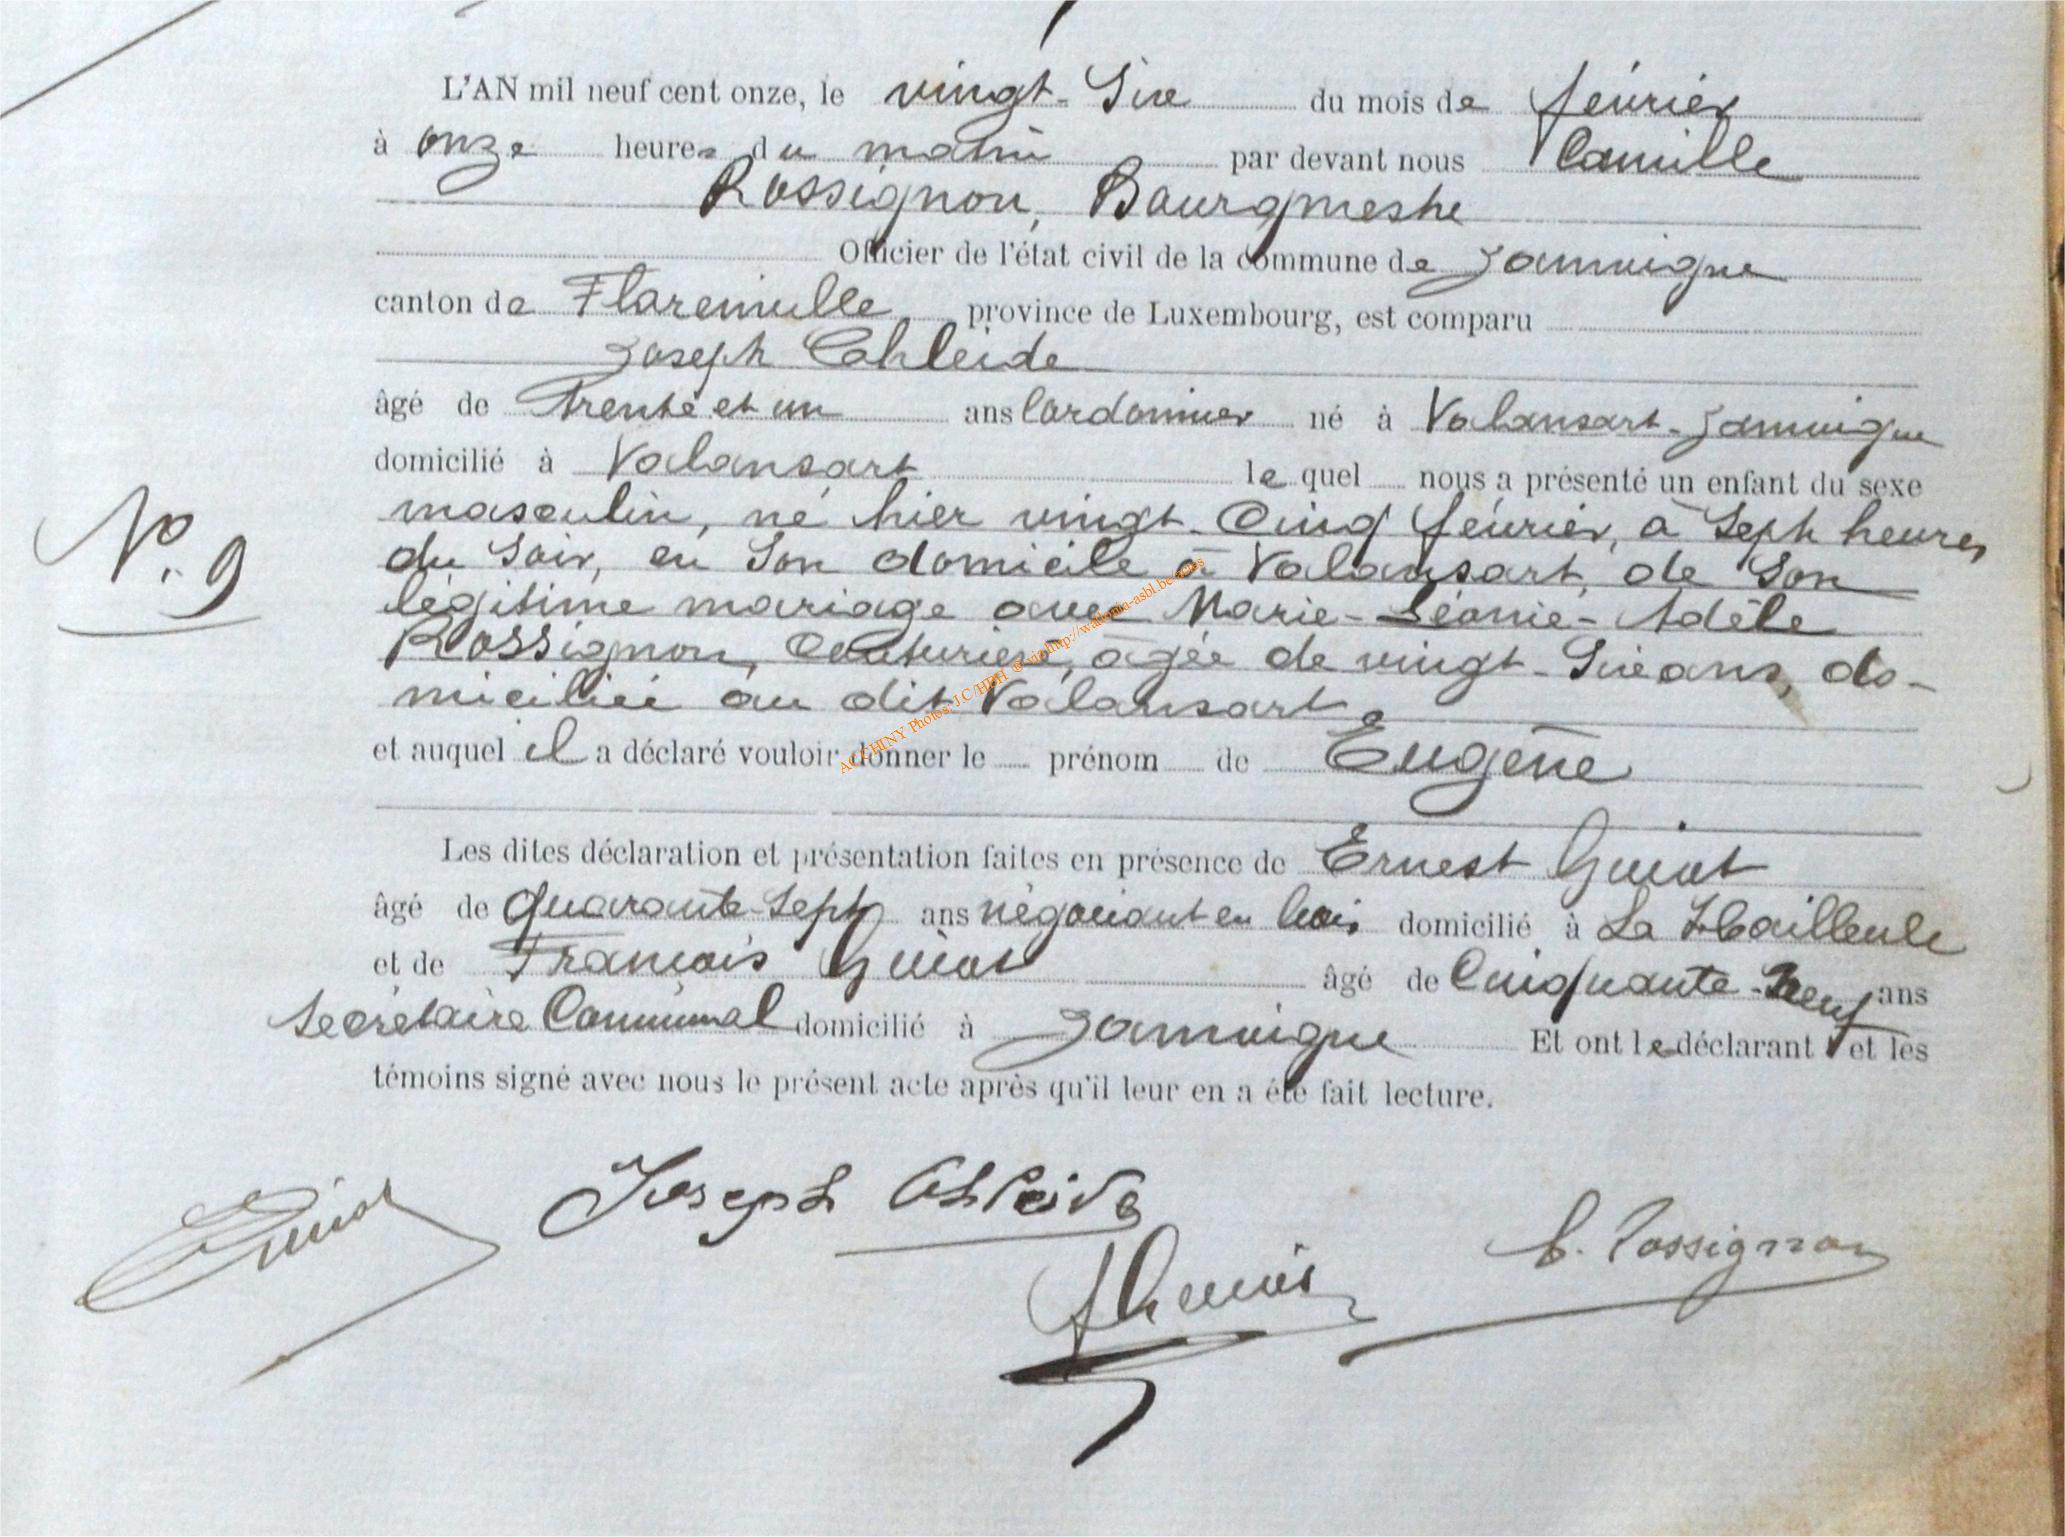 L'AN mil neuf cent onze, le vingt-Six du mois de février
à onze heures du matin par devant nous Camille
Rossignon, Bourgmestre
Officier de l'état civil de la commune de Jamoigne
canton de Florenville province de Luxembourg, est comparu
Joseph Cahleide
âgé de Trente et un ans Cordonnier né à Valansart-Jamoigne
domicilié à Valansart lequel nous a présenté un enfant du sexe
masculin, né hier vingt-Cinq février, à Sept heures
N°. 9
du Soir, en Son domicile à Valansart, de Son
légitime mariage avec Marie-Léonie-Adèle
Rossignon, Couturière, âgée de vingt-Six ans, do-
miciliée au dit Valansart
et auquel il a déclaré vouloir donner le prénom de Eugène
Les dites déclaration et présentation faites en présence de Ernest Guiot
âgé de Quarante-Sept ans négociant en bois domicilié à La Hailleule
et de François Guiot âgé de Cinquante-Neuf ans
Secrétaire Communal domicilié à Jamoigne Et ont le déclarant et les
témoins signé avec nous le présent acte après qu'il leur en a été fait lecture.
Guiot Joseph C. Rossignon
ACCHINY Photos: J.C/HBH @ via http://wallonia-asbl.be-actes